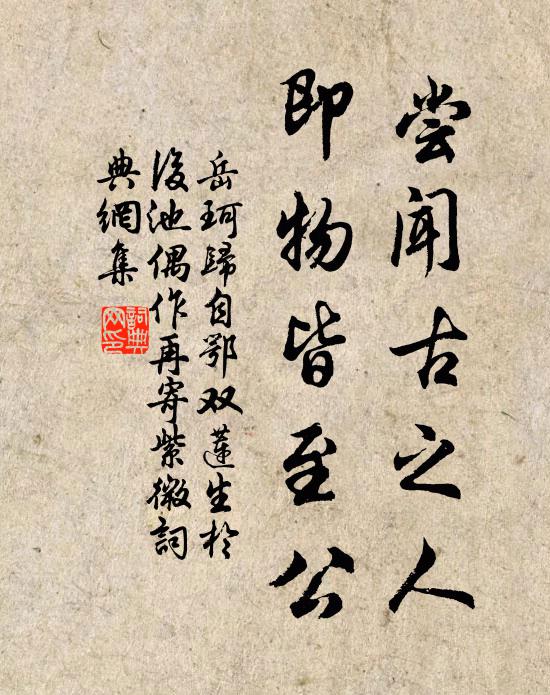 尝闻古之人
即物皆至公
岳珂歸自鄂双蓮生於
後池偶作再寄紫微詞
典網集
詞典
网印